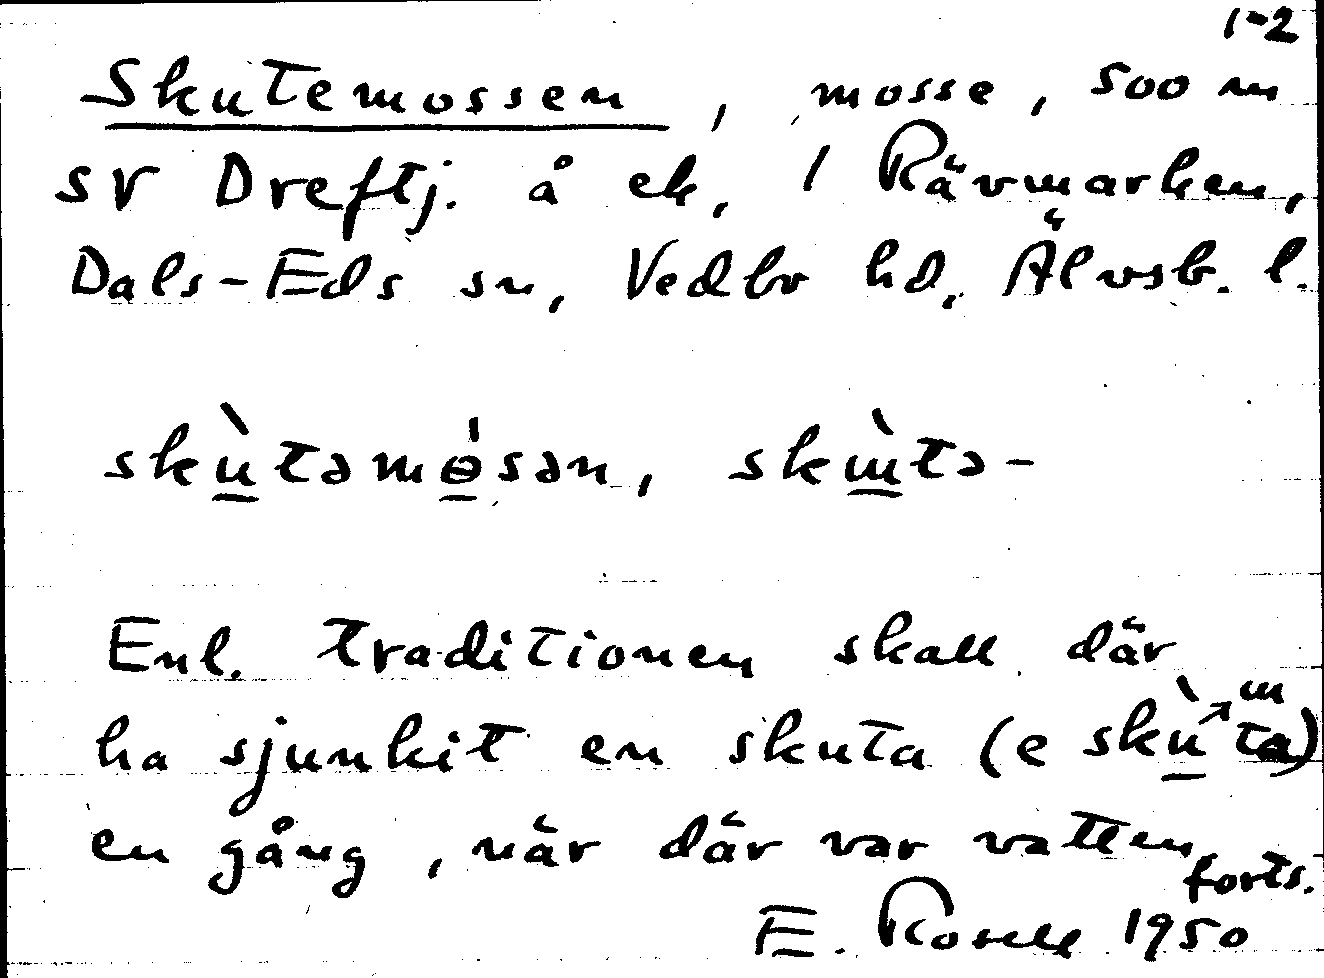 1-2
Skutemossen, mosse, 500 m
SV Dreftj. å ek, 1 Rävmarken,
Dals-Eds sn, Vedbo hd, Älvsb. l.
skùtəmɵ́sən, skɯ̀tə-
Enl. traditionen skall där
ha sjunkit en skuta (e skùta) ɯ
en gång, när där var vatten
forts.
E. Rosell 1950